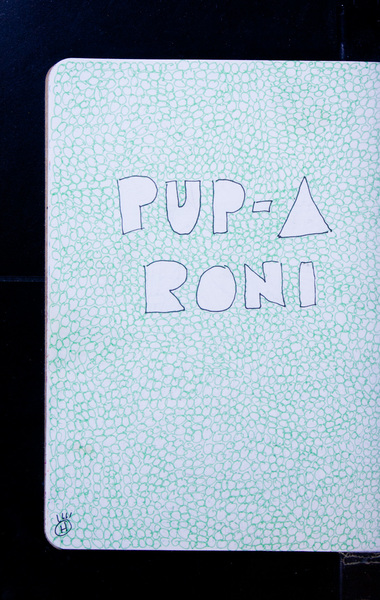 PUP-A
RONI
H